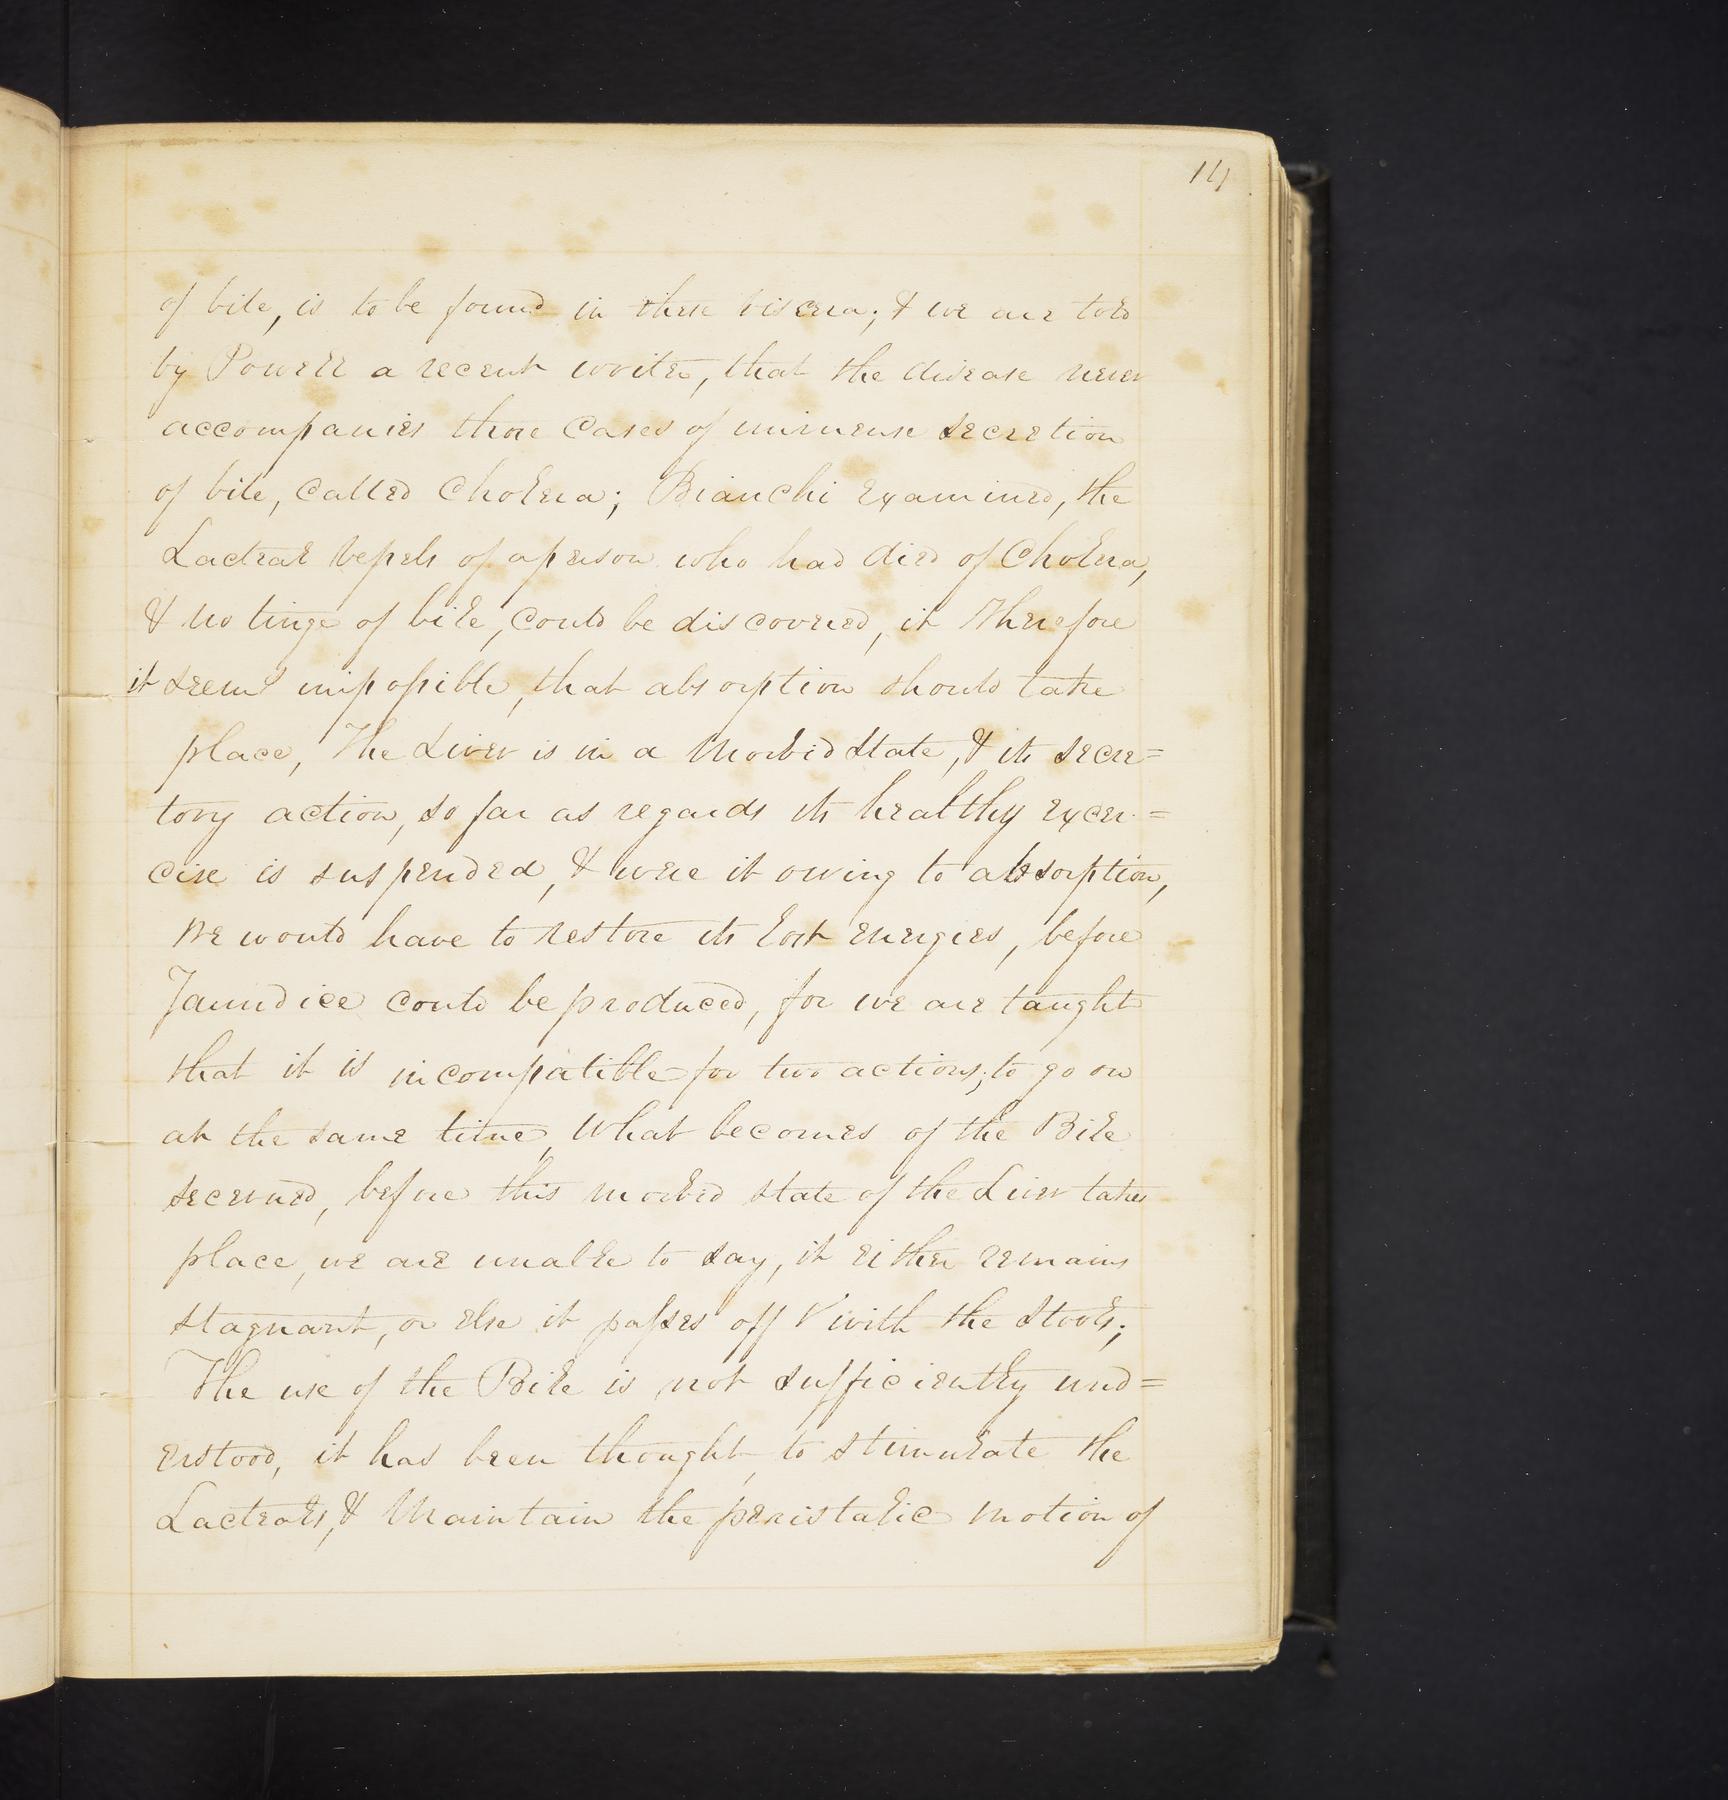 14
of bile, is to be found in these viscera; & we are told
by Powell a recent writer, that the disease never
accompanies those Cases of immense secretion
of bile, called Cholera; Bianchi examined, the
Lacteal vessels of a person who had died of Cholera,
& no tinge of bile, could be discovered, it therefore
it seems impossible, that absorption should take
place, The Liver is in a Morbid State, & its secre=
tory action, so far as regards its healthy exer=
cise is suspended, & were it owing to absorption,
we would have to restore its lost energies, before
Jaundice could be produced, for we are taught
that it is incompatible for two actions; to go on
at the same time, What becomes of the Bile
secerned, before this morbid state of the Liver takes
place, we are unable to say, it either remains
stagnant, or else it passes off with the Stools;
The use of the Bile is not sufficiently und=
erstood, it has been thought, to stimulate the
Lacteals, & Maintain the peristalic motion of